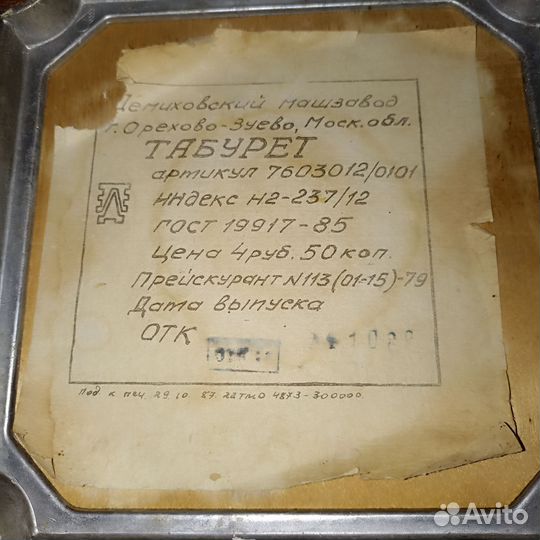 Демиховский машзавод
г. Орехово-Зуево, Моск. обл.
ТАБУРЕТ
артикул 7603012/0101
индекс Н2-237/12
гост 19917-85
Цена 4 руб. 50 коп.
Прейскурант N113(01-15)-79
Дата выпуска
ОТК
Под. к печ. 29.10.87. 22ТМО 4873-300000.
Avito